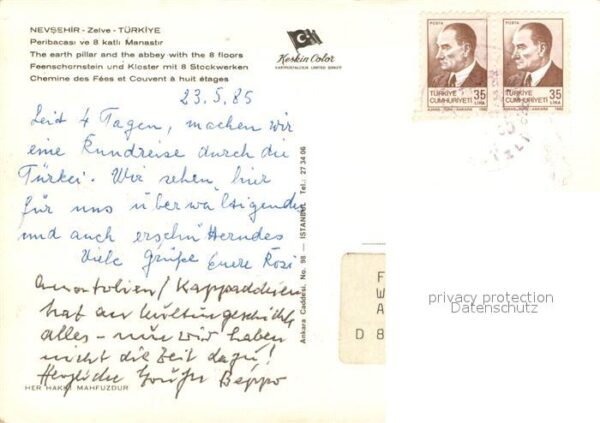 NEVŞEHİR - Zelve - TÜRKİYE
Peribacası ve 8 katlı Manastır
The earth pillar and the abbey with the 8 floors
Feenschornstein und Kloster mit 8 Stockwerken
Chemine des Fées et Couvent à huit étages
Keskin Color
KARTPOSTALCILIK LIMITED ŞIRKETI
POSTA
TÜRKİYE
CUMHURİYETİ
35
LİRA
POSTA
TÜRKİYE
CUMHURİYETİ
35
LİRA
23.5.85
Seit 4 Tagen, machen wir
eine Rundreise durch die
Türkei. Wir sehen hier
für uns überwältigendes
und auch erschütterndes
Viele Grüße Eure Rosi
Anatolien / Kappadokien
hat an Kulturgeschichte
alles - nur wir haben
nicht die Zeit dazu!
Herzliche Grüße Beppo
HER HAKKI MAHFUZDUR
Ankara Caddesi. No. 98 — İSTANBUL Tel.: 27 34 06
F
W
A
D 8
privacy protection
Datenschutz